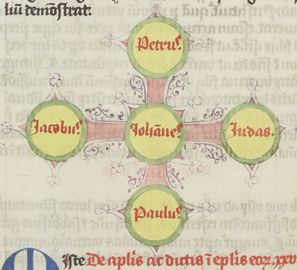 liū demōstrat.
Petruſ.
Jacobuſ.
Johāneſ.
Judas.
Pauluſ.
Iſte De aplis ac dictis ī eplis eoꝝ. xxv